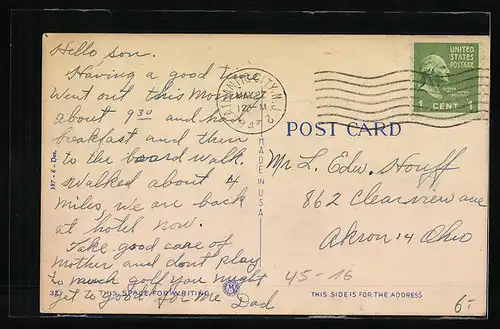 Hello son.
Having a good time
Went out this Morning
about 9 30 and had
breakfast and then
to the board walk.
Walked about 4
miles, we are back
at hotel now.
Take good care of
Mother and dont play
to much golf You might
get to good for me Dad
THIS SPACE FOR WRITING
597-6-Dec.
MADE IN U.S.A.
ATLANTIC CITY, N.J.
MAY 27
12 - M
1947
2
UNITED
STATES
POSTAGE
1 CENT 1
POST CARD
Mr L. Edw. Houff
862 Clearview ave
Akron 14 Ohio
45-16
THIS SIDE IS FOR THE ADDRESS
6-